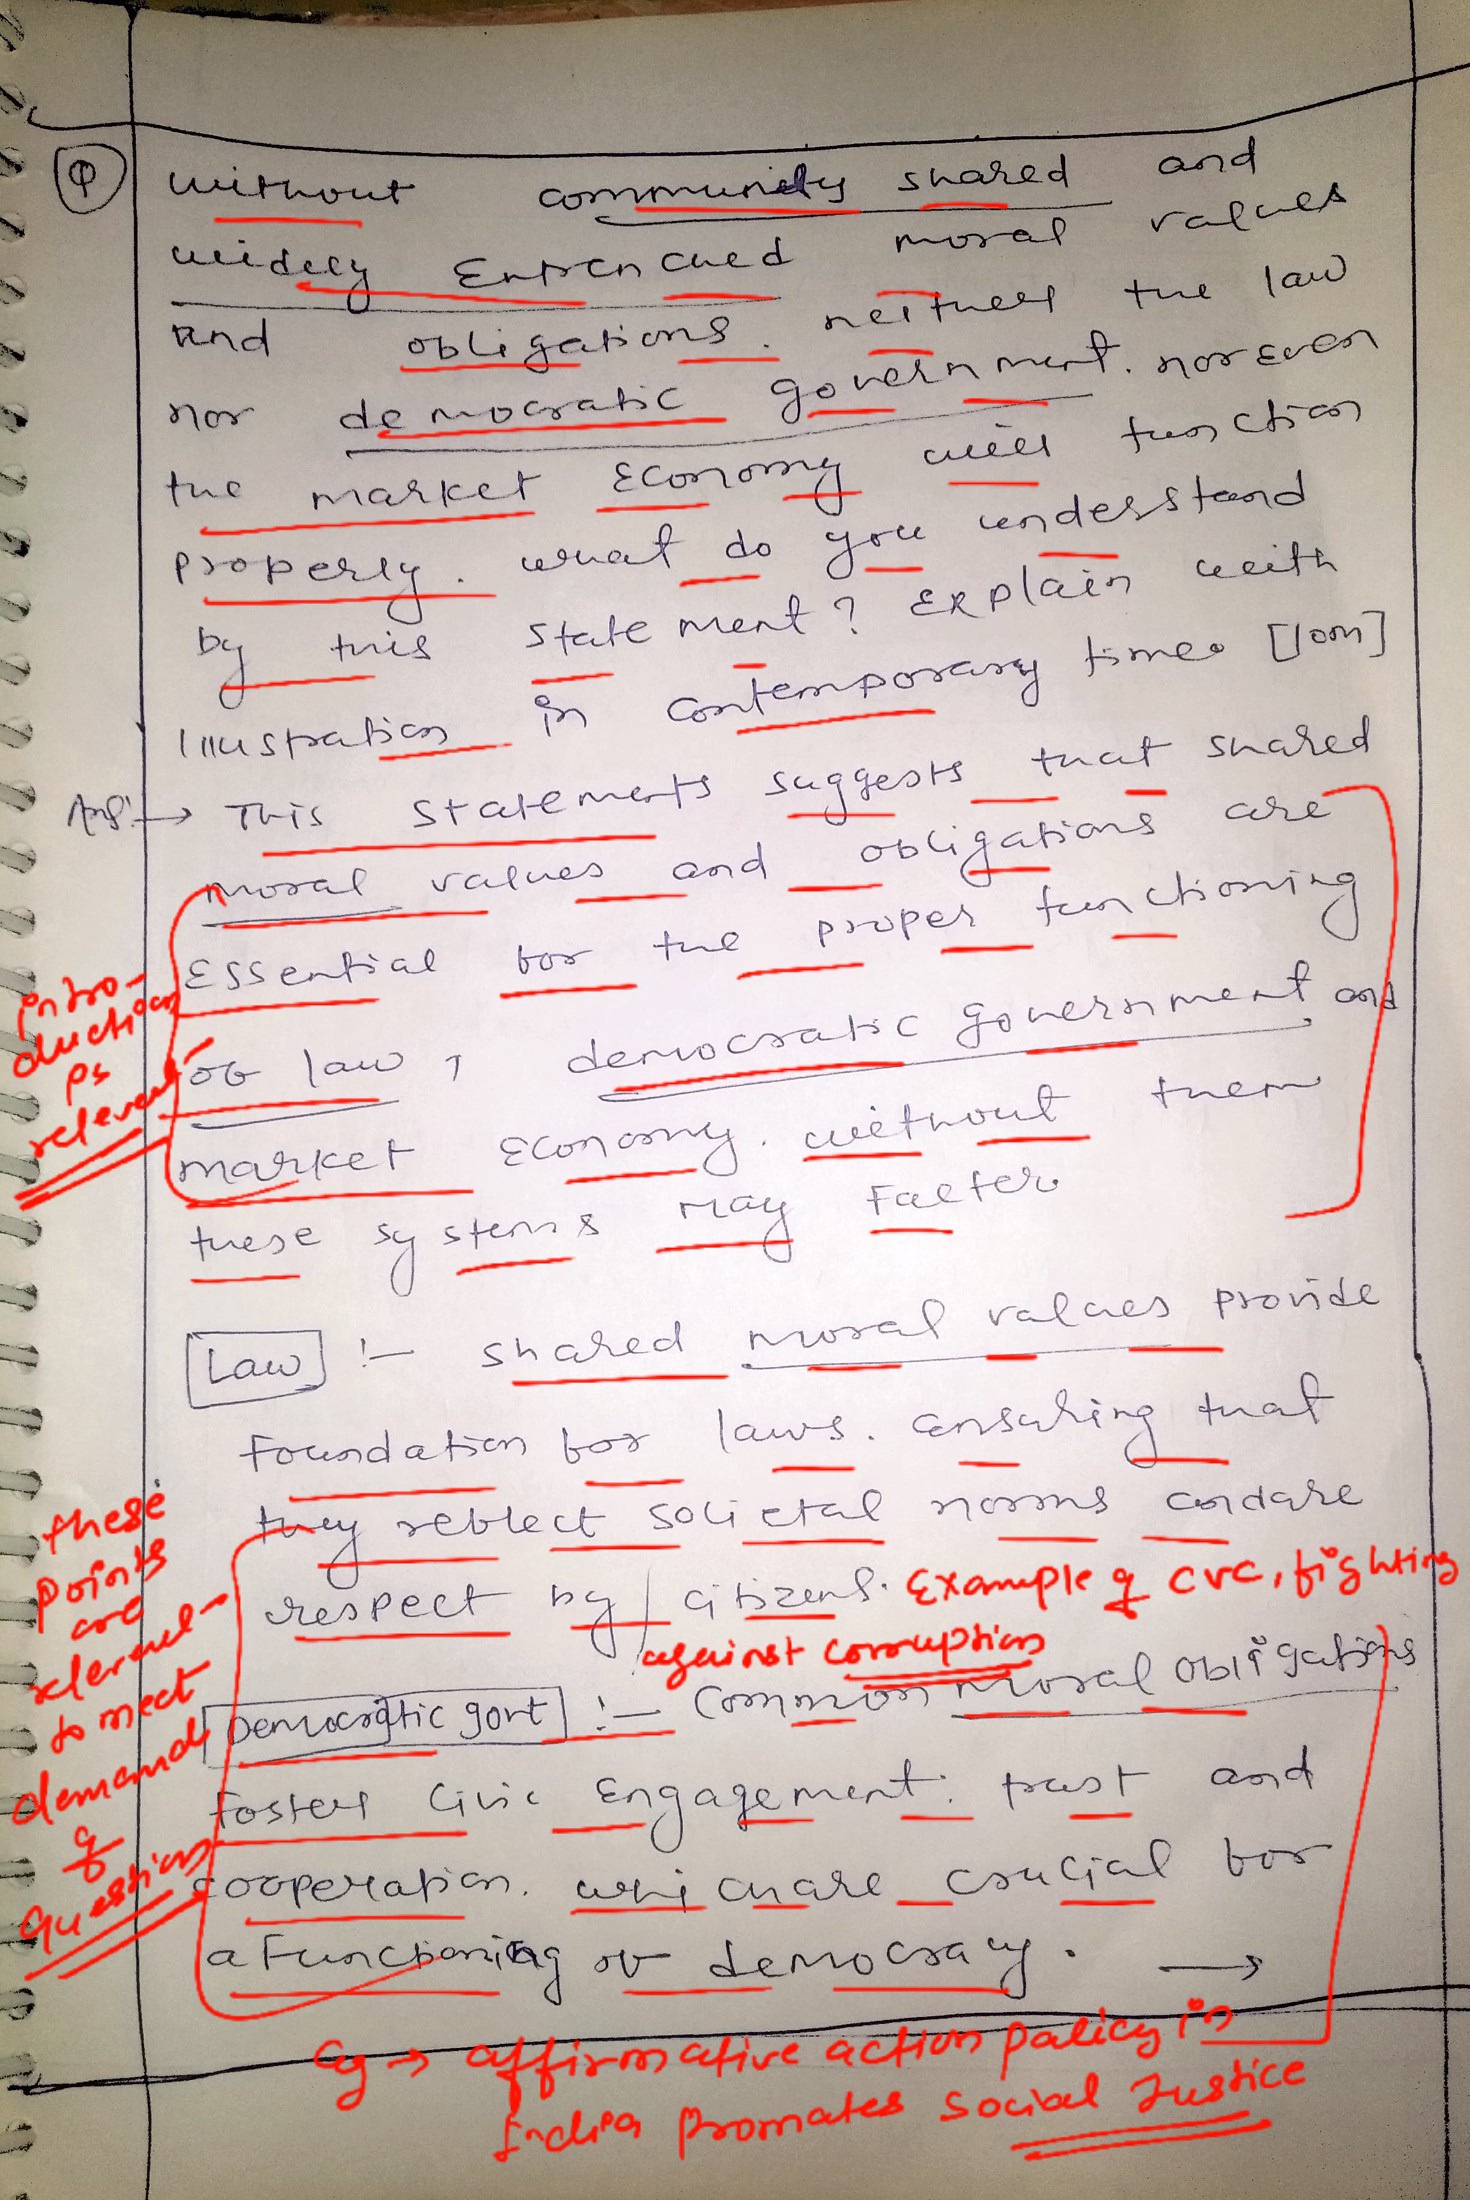 Q without community shared and
widely Entrenched moral values
and obligations. neither the law
nor democratic government. nor even
the market Economy will function
properly. what do you understand
by this statement? Explain with
Illustration in contemporary time. [10m]
Ans:→ This statements suggests that shared
moral values and obligations are
Essential for the proper functioning
of law, democratic government and
market Economy. without them
these systems may Falter.
intro-
duction
is
relevant
Law :- shared moral values provide
Foundation for laws. ensuring that
they reflect societal norms and are
respect by citizens. Example of CVC, fighting
against corruption
Democratic govt :- common moral obligations
fosters Civic Engagement. trust and
cooperation. which are crucial for
a Functioning of democracy. →
these
points
are
relevant
to meet
demand
of
question
eg → affirmative action policy in
India promotes social Justice